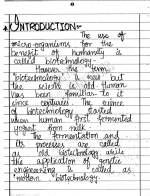 INTRODUCTION:-
The use of
micro-organisms for the
benefit of humanity is
called biotechnology.
However the term
"biotechnology" is new but
the science is old. Human
has been familiar to it
since centuries. The science
of biotechnology started
when human first fermented
yogurt from milk.
The fermentation and
its processes are called
as old biotechnology while
the application of genetic
engineering is called as
modern biotechnology.